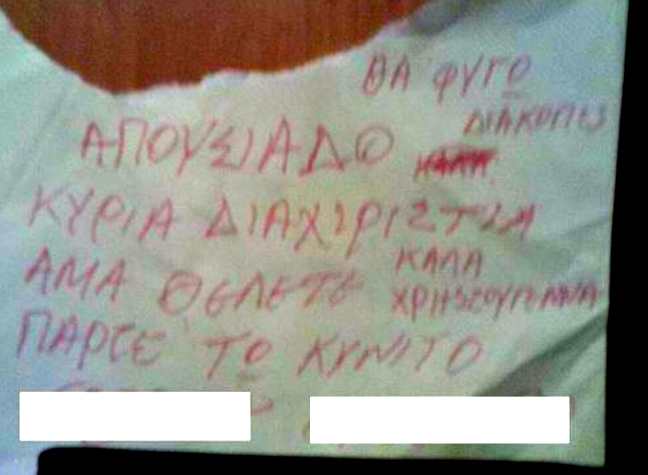 ΘΑ ΦΥΓΟ
ΔΙΑΚΟΠΕΣ
ΑΠΟΥΣΙΑΔΟ
ΚΥΡΙΑ ΔΙΑΧΙΡΙΣΤΙΑ
ΑΜΑ ΘΕΛΕΤΕ
ΚΑΛΑ
ΧΡΗΣΟΥΓΕΝΑ
ΠΑΡΤΕ ΤΟ ΚΥΝΙΤΟ